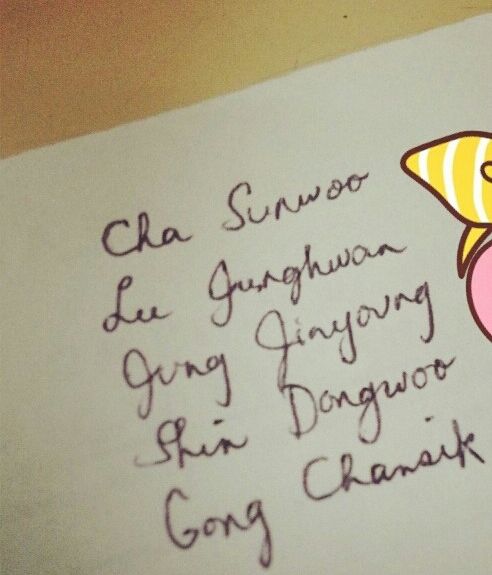 Cha Sunwoo
Lee Junghwan
Jung Jinyoung
Shin Dongwoo
Gong Chansik